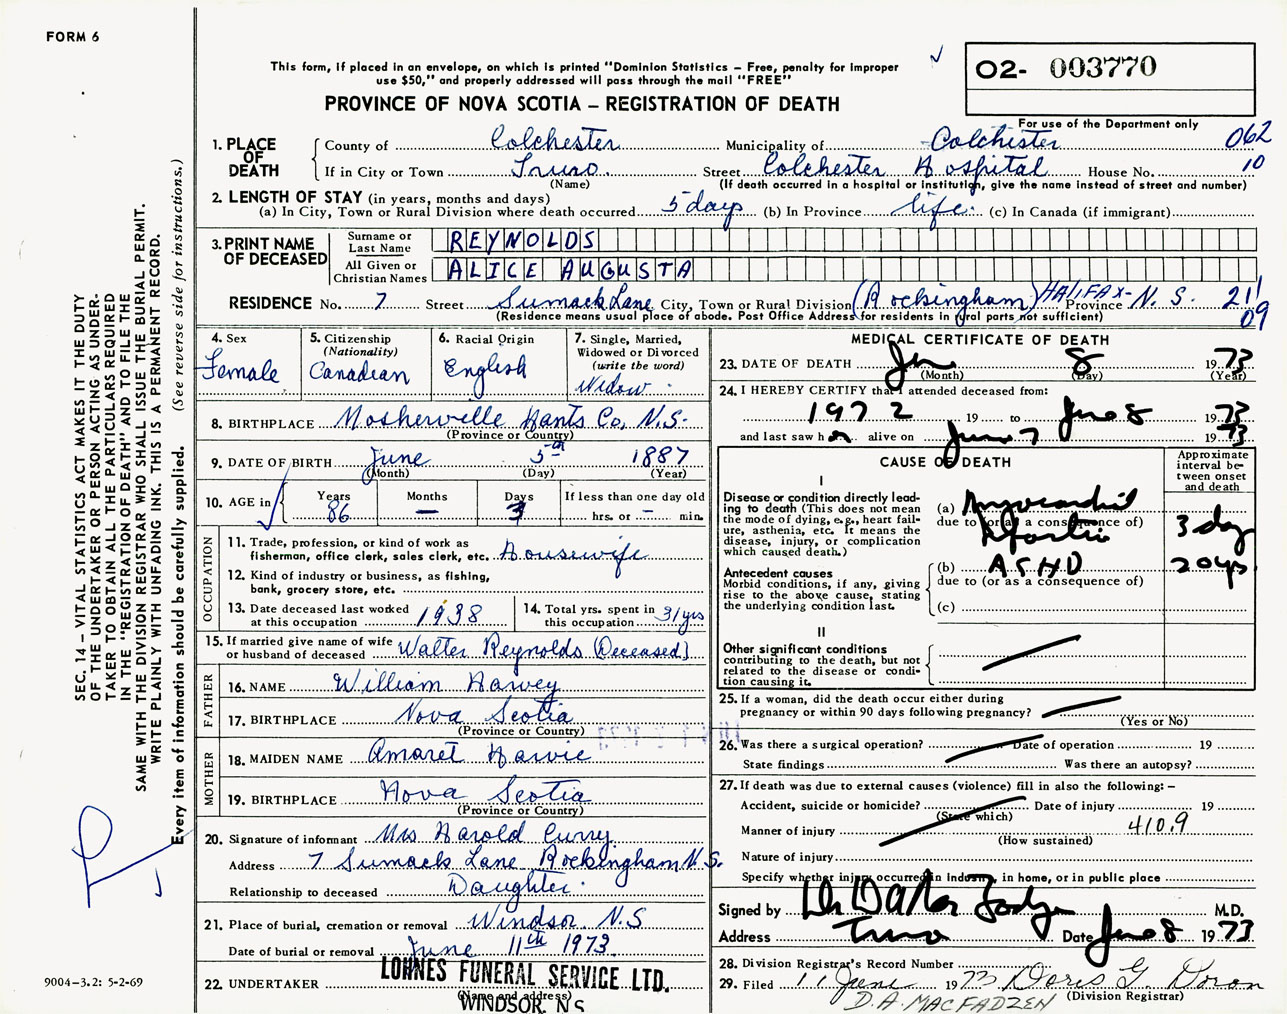 FORM 6
This form, if placed in an envelope, on which is printed "Dominion Statistics – Free, penalty for improper
use $50," and properly addressed will pass through the mail "FREE"
PROVINCE OF NOVA SCOTIA – REGISTRATION OF DEATH
O2- 003770
For use of the Department only
062
10
1. PLACE OF DEATH
County of Colchester Municipality of Colchester
If in City or Town Truro. Street Colchester Hospital House No.
(Name) (If death occurred in a hospital or institution, give the name instead of street and number)
2. LENGTH OF STAY (in years, months and days)
(a) In City, Town or Rural Division where death occurred 5 days (b) In Province life. (c) In Canada (if immigrant)
3. PRINT NAME OF DECEASED
Surname or Last Name REYNOLDS
All Given or Christian Names ALICE AUGUSTA
RESIDENCE No. 7 Street Sumack Lane City, Town or Rural Division (Rockingham) HALIFAX- Province N. S. 211
09
(Residence means usual place of abode. Post Office Address for residents in rural parts not sufficient)
4. Sex Female
5. Citizenship (Nationality) Canadian
6. Racial Origin English
7. Single, Married, Widowed or Divorced (write the word) Widow
8. BIRTHPLACE Mosherville Hants Co. N.S.
(Province or Country)
9. DATE OF BIRTH June 5th 1887
(Month) (Day) (Year)
10. AGE in Years 86 Months – Days 3 If less than one day old hrs. or – min.
OCCUPATION
11. Trade, profession, or kind of work as
fisherman, office clerk, sales clerk, etc. Housewife
12. Kind of industry or business, as fishing,
bank, grocery store, etc.
13. Date deceased last worked
at this occupation 1938
14. Total yrs. spent in
this occupation 31 yrs
15. If married give name of wife
or husband of deceased Walter Reynolds (Deceased)
FATHER
16. NAME William Harvey
17. BIRTHPLACE Nova Scotia
(Province or Country)
MOTHER
18. MAIDEN NAME Amaret Harvie
19. BIRTHPLACE Nova Scotia
(Province or Country)
20. Signature of informant Mrs Harold Curry
Address 7 Sumack Lane Rockingham N.S.
Relationship to deceased Daughter.
21. Place of burial, cremation or removal Windsor N.S
Date of burial or removal June 11th 1973
22. UNDERTAKER LOHNES FUNERAL SERVICE LTD.
(Name and address)
WINDSOR, N.S.
MEDICAL CERTIFICATE OF DEATH
23. DATE OF DEATH June 8 1973
(Month) (Day) (Year)
24. I HEREBY CERTIFY that I attended deceased from:
1972 19 to June 8 1973
and last saw her alive on June 7 1973
CAUSE OF DEATH
Approximate interval between onset and death
I
Disease or condition directly lead-
ing to death (This does not mean
the mode of dying, e.g., heart fail-
ure, asthenia, etc. It means the
disease, injury, or complication
which caused death.)
(a) Myocardial
due to (or as a consequence of)
3 day
Antecedent causes
Morbid conditions, if any, giving
rise to the above cause, stating
the underlying condition last.
(b) ASHD 20 yrs
due to (or as a consequence of)
(c)
II
Other significant conditions
contributing to the death, but not
related to the disease or condi-
tion causing it.
25. If a woman, did the death occur either during
pregnancy or within 90 days following pregnancy?
(Yes or No)
26. Was there a surgical operation? Date of operation 19
State findings Was there an autopsy?
27. If death was due to external causes (violence) fill in also the following: –
Accident, suicide or homicide? Date of injury 19
(State which)
Manner of injury 410.9
(How sustained)
Nature of injury
Specify whether injury occurred in Industry, in home, or in public place
Signed by Dr M.D.
Address Truro Date June 8 1973
28. Division Registrar's Record Number
29. Filed 11 June 1973 Doris G. Doran
(Division Registrar)
D.A. MACFADZEN
SEC. 14 – VITAL STATISTICS ACT MAKES IT THE DUTY
OF THE UNDERTAKER OR PERSON ACTING AS UNDER-
TAKER TO OBTAIN ALL THE PARTICULARS REQUIRED
IN THE "REGISTRATION OF DEATH" AND TO FILE THE
SAME WITH THE DIVISION REGISTRAR WHO SHALL ISSUE THE BURIAL PERMIT.
WRITE PLAINLY WITH UNFADING INK. THIS IS A PERMANENT RECORD.
Every item of information should be carefully supplied. (See reverse side for instructions.)
9004-3.2: 5-2-69